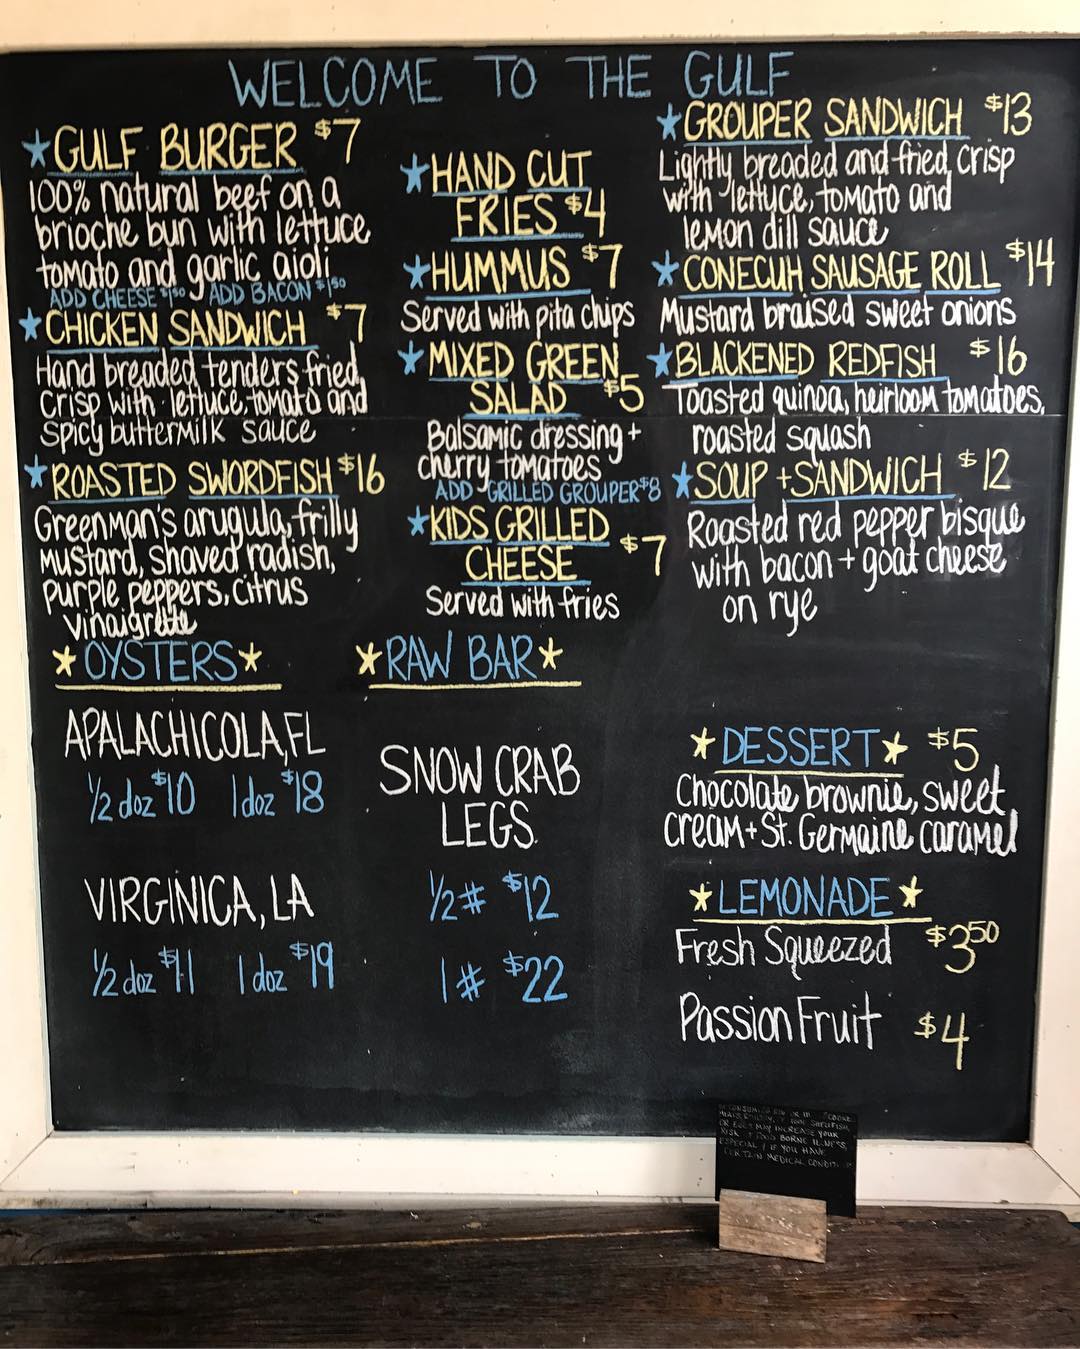 WELCOME TO THE GULF
★GULF BURGER $7
100% natural beef on a
brioche bun with lettuce
tomato and garlic aioli
ADD CHEESE $1.50 ADD BACON $1.50
★CHICKEN SANDWICH $7
Hand breaded tenders fried
crisp with lettuce, tomato and
spicy buttermilk sauce
★ROASTED SWORDFISH $16
Greenman's arugula, frilly
mustard, shaved radish,
purple peppers, citrus
vinaigrette
★HAND CUT
FRIES $4
★HUMMUS $7
Served with pita chips
★MIXED GREEN
SALAD $5
Balsamic dressing +
cherry tomatoes
ADD GRILLED GROUPER $8
★KIDS GRILLED
CHEESE $7
Served with fries
★GROUPER SANDWICH $13
Lightly breaded and fried crisp
with lettuce, tomato and
lemon dill sauce
★CONECUH SAUSAGE ROLL $14
Mustard braised sweet onions
★BLACKENED REDFISH $16
Toasted quinoa, heirloom tomatoes,
roasted squash
★SOUP + SANDWICH $12
Roasted red pepper bisque
with bacon + goat cheese
on rye
★OYSTERS★
APALACHICOLA, FL
1/2 doz $10 1 doz $18
VIRGINICA, LA
1/2 doz $11 1 doz $19
★RAW BAR★
SNOW CRAB
LEGS
1/2 # $12
1 # $22
★DESSERT★ $5
Chocolate brownie, sweet
cream + St. Germaine caramel
★LEMONADE★
Fresh Squeezed $3.50
Passion Fruit $4
OR EGGS MAY INCREASE YOUR
RISK FOOD BORNE ILLNESS,
IF YOU HAVE
CERTAIN MEDICAL